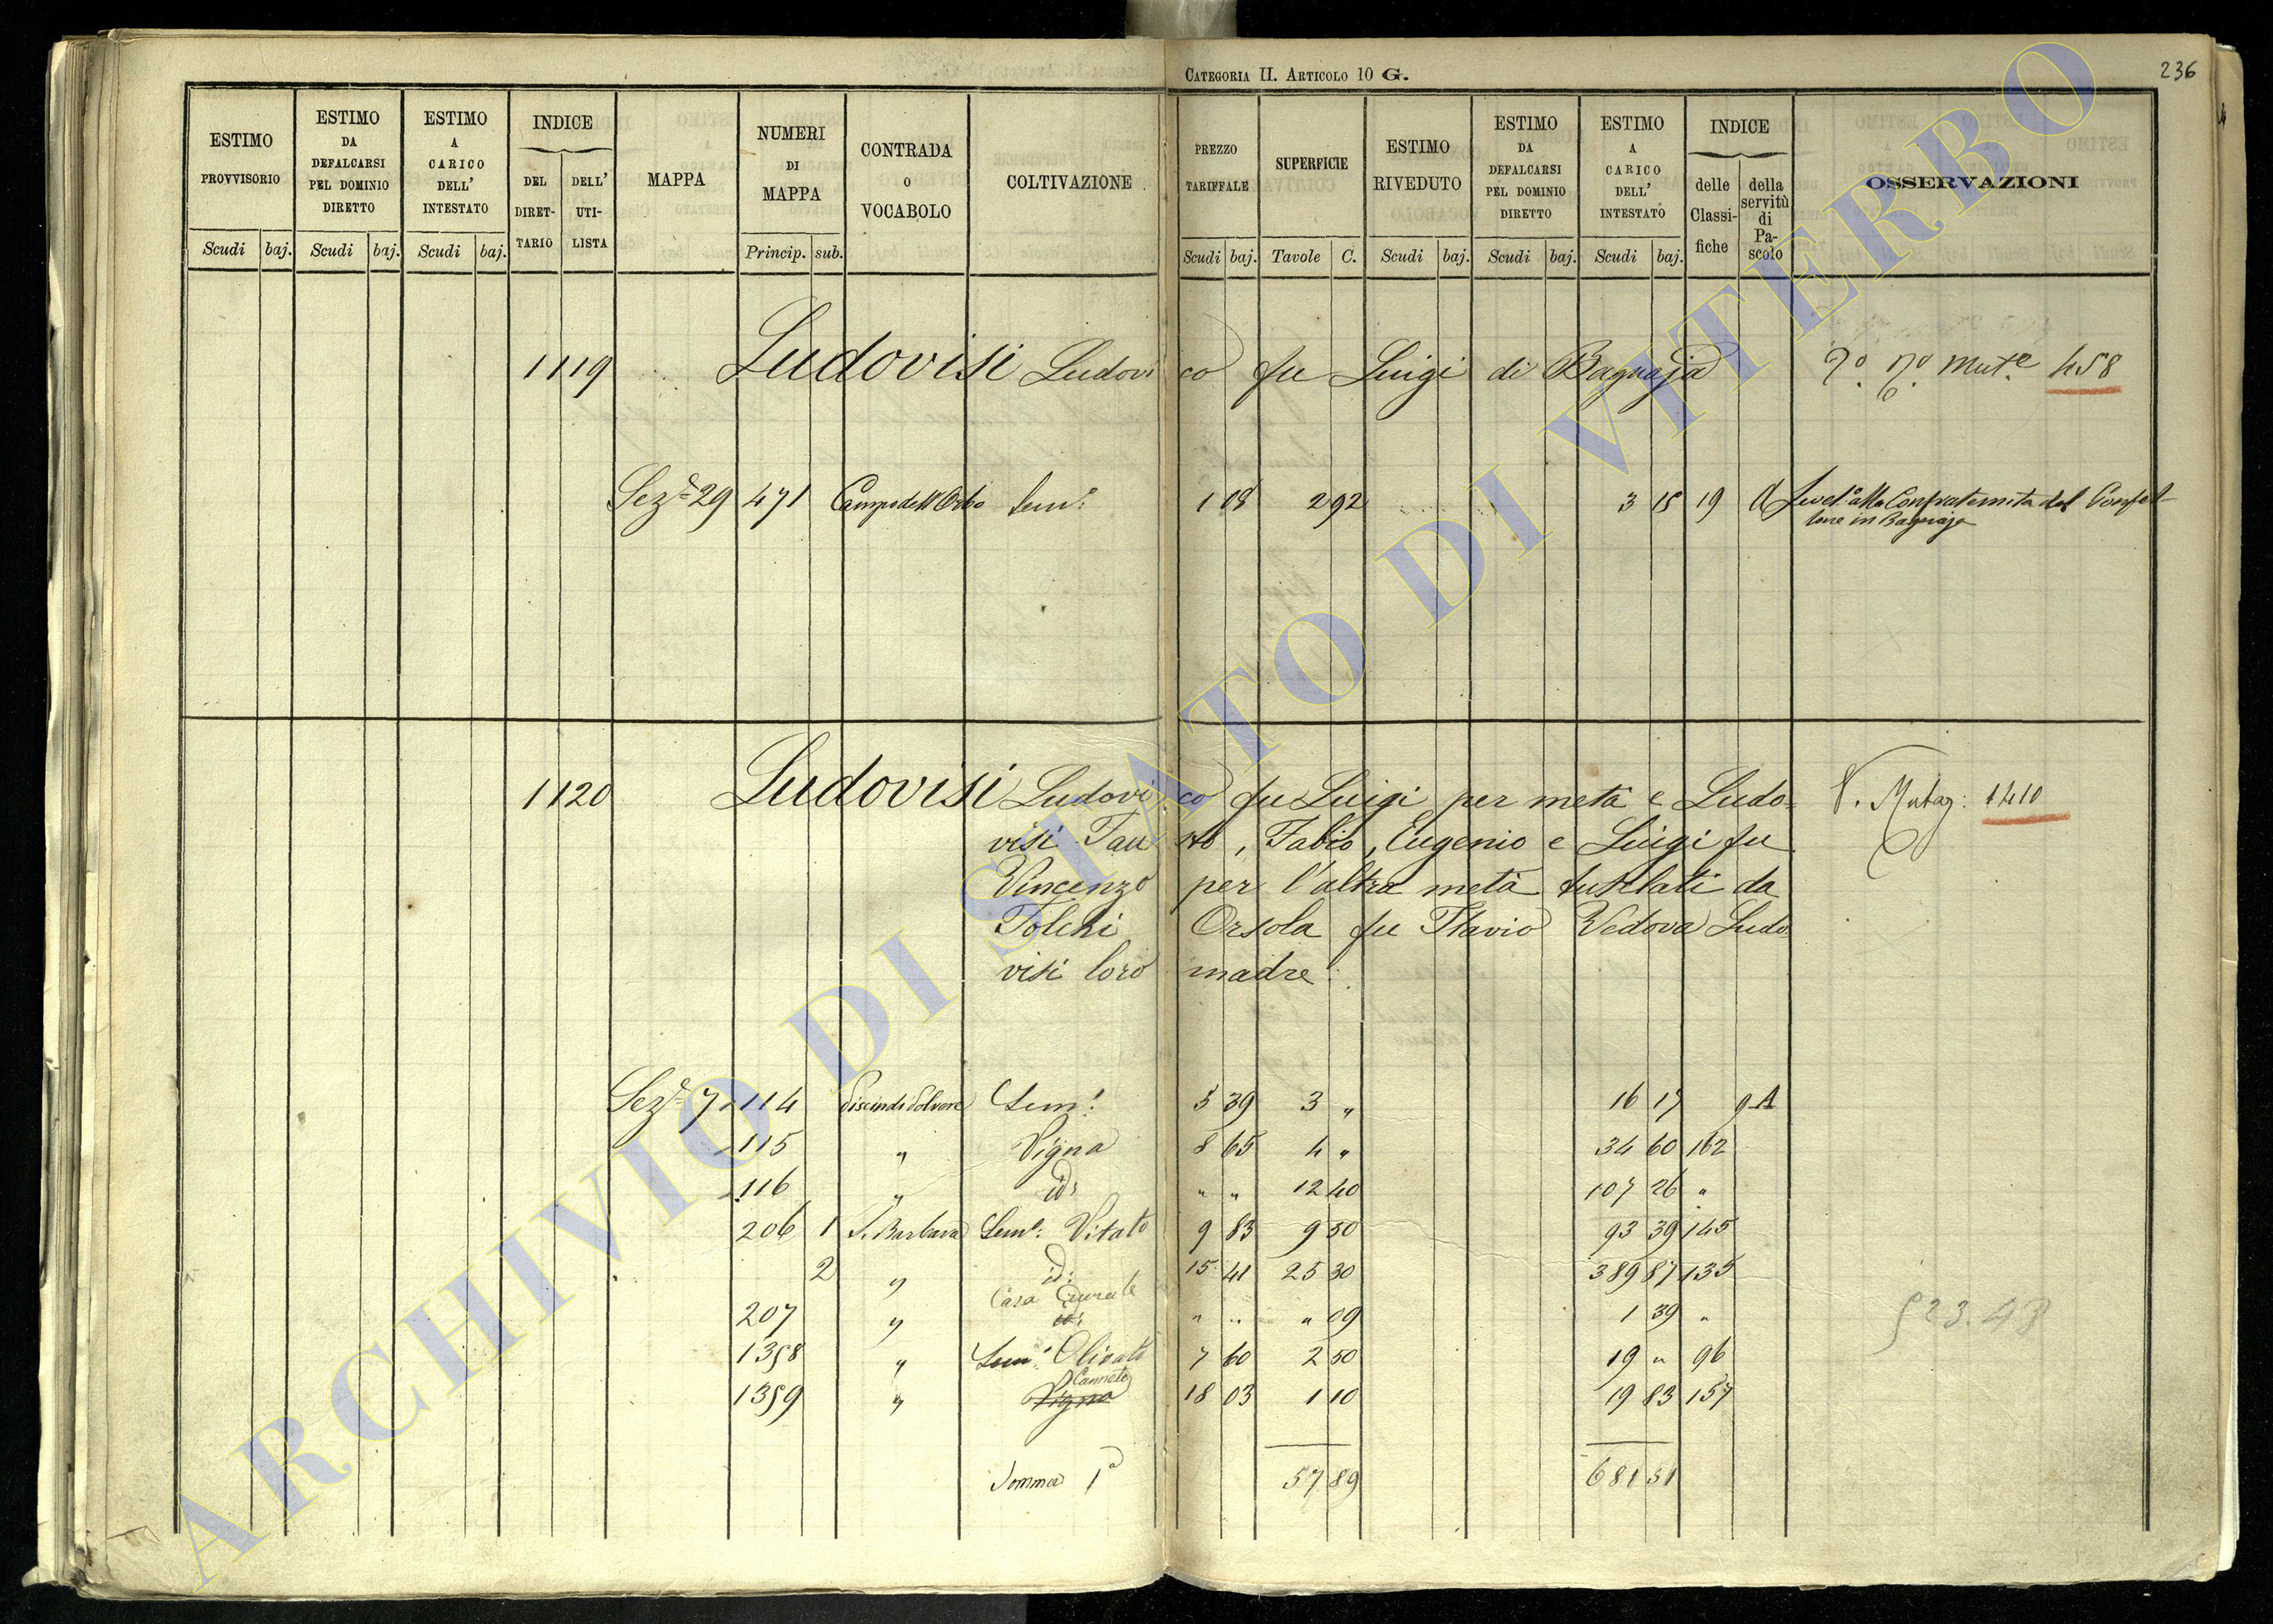 CATEGORIA II. ARTICOLO 10 G.
236
ESTIMO PROVVISORIO Scudi baj.
ESTIMO DA DEFALCARSI PEL DOMINIO DIRETTO Scudi baj.
ESTIMO A CARICO DELL' INTESTATO Scudi baj.
INDICE DEL DIRETTARIO DELL' UTILISTA
MAPPA
NUMERI DI MAPPA Princip. sub.
CONTRADA O VOCABOLO
COLTIVAZIONE
PREZZO TARIFFALE Scudi baj.
SUPERFICIE Tavole C.
ESTIMO RIVEDUTO Scudi baj.
ESTIMO DA DEFALCARSI PEL DOMINIO DIRETTO Scudi baj.
ESTIMO A CARICO DELL' INTESTATO Scudi baj.
INDICE delle Classifiche della servitù di Pascolo
OSSERVAZIONI
1119 Ludovisi Ludovico fu Luigi di Bagnaja 458
Sez.e 29 471 Campo dell'Orbo Sem.o 1 08 2 92 3 15 19 A Livel.o alla Confraternita del Gonfalone in Bagnaja
1120 Ludovisi Ludovico fu Luigi per metà e Ludo- V. Mutaz: 1410
visi Fausto, Fabio, Eugenio e Luigi fu
Vincenzo per l'altra metà tutelati da
Folchi Orsola fu Flavio Vedova Ludo
visi loro madre
Sez.e 7 114 Piscin di Polvere Sem.o 5 39 3 „ 16 17 9 A
115 „ Vigna 8 65 4 „ 34 60 162
116 „ id: „ „ 12 40 107 26 „
206 1 S. Barbara Sem.o Vitato 9 83 9 50 93 39 145
2 „ id: 15 41 25 30 389 87 135
207 „ Casa Rurale id: „ „ „ 09 1 39 „
1358 „ Sem.o Olivato 7 60 2 50 19 „ 96
1359 „ Canneto Vigna 18 03 1 10 19 83 157
523.48
Somma 1a 57 89 681 51
ARCHIVIO DI STATO DI VITERBO